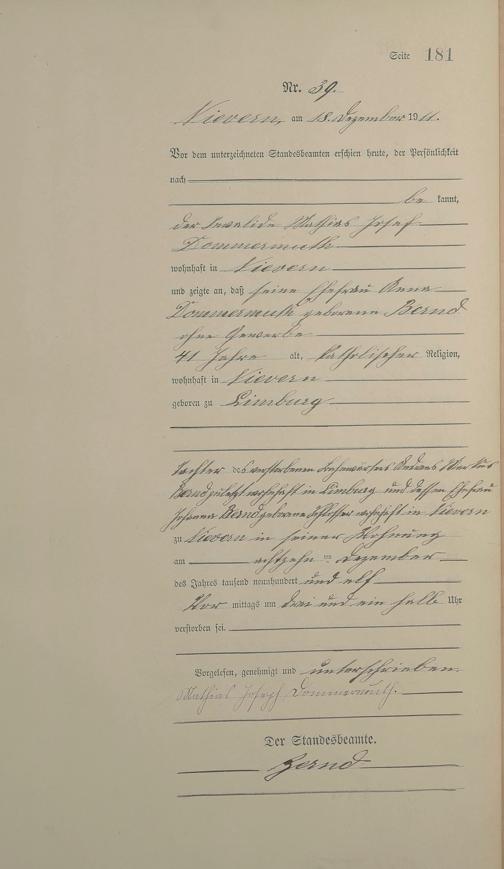 Seite 181
Nr. 39.
Nievern, am 18. Dezember 1911.
Vor dem unterzeichneten Standesbeamten erschien heute, der Persönlichkeit
nach
be kannt,
der Invalide Mathias Josef
Dommermuth
wohnhaft in Nievern
und zeigte an, daß seine Ehefrau Anna
Dommermuth geborene Bernd
ohne Gewerbe
41 Jahre alt, katholischer Religion,
wohnhaft in Nievern
geboren zu Limburg
Tochter des verstorbenen Andreas
Bernd zuletzt wohnhaft in Limburg und dessen Ehefrau
Johanna Bernd geborene wohnhaft in Nievern
zu Nievern in seiner Wohnung
am achtzehn ten Dezember
des Jahres tausend neunhundert und elf
Vor mittags um drei und ein halb Uhr
verstorben sei.
Vorgelesen, genehmigt und unterschrieben
Mathias Joseph Dommermuth.
Der Standesbeamte.
Bernd